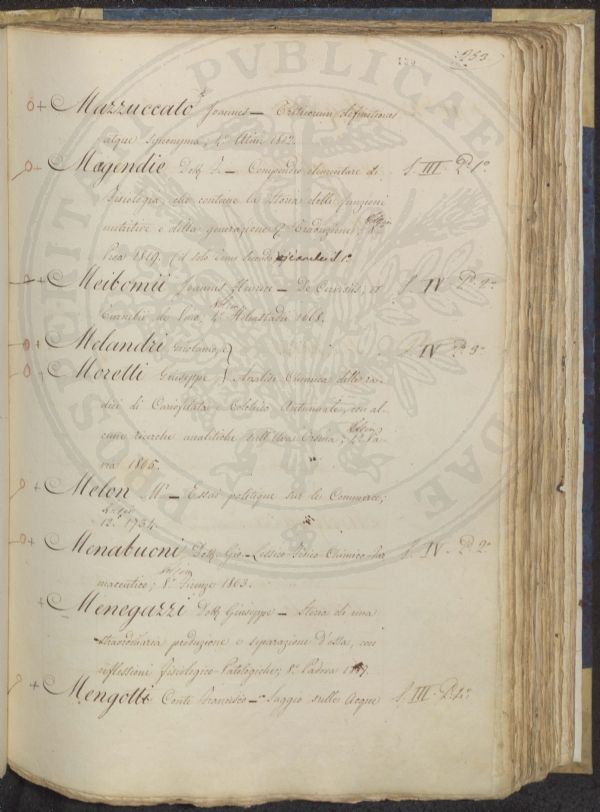 253
Mazzuccato Joannes — Triticorum definitiones
atque synonyma; 4° Utini 1812.
Magendie Dott. F. — Compendio elementare di S. III. P. 1°
Fisiologia, che contiene la Storia delle funzioni
nutritive e della generazione; Traduzione; 8°
Pisa 1819. (il solo Tomo secondo
Meibomii Joannis Henrici — De Cervisiis, et S. IV P. 9°
4° Helmstadii 1668.
Melandri Girolamo, e S. IV P. 3°
Moretti Giuseppe, Analisi Chimica delle ra-
dici di Cariofillata e Colchico Autunnale, con al-
cune ricerche analitiche sull'Uva Orsina; 4° Pa-
via 1805.
Melon Mr. — Essai politique sur le Commerce;
12° 1754.
Menabuoni Dott. Gio. — Lessico Fisico-Chimico-Far S. IV. P. 2°
maceutico; 8° Firenze 1803.
Menegazzi Dott. Giuseppe — Storia di una
straordinaria produzione e separazione d'ossa, con
riflessioni Fisiologico-Patologiche; 8° Padova
Mengotti Conte Francesco — Saggio sulle Acque S. III. P. 2°
PVBLICAE
PROSPERITATI